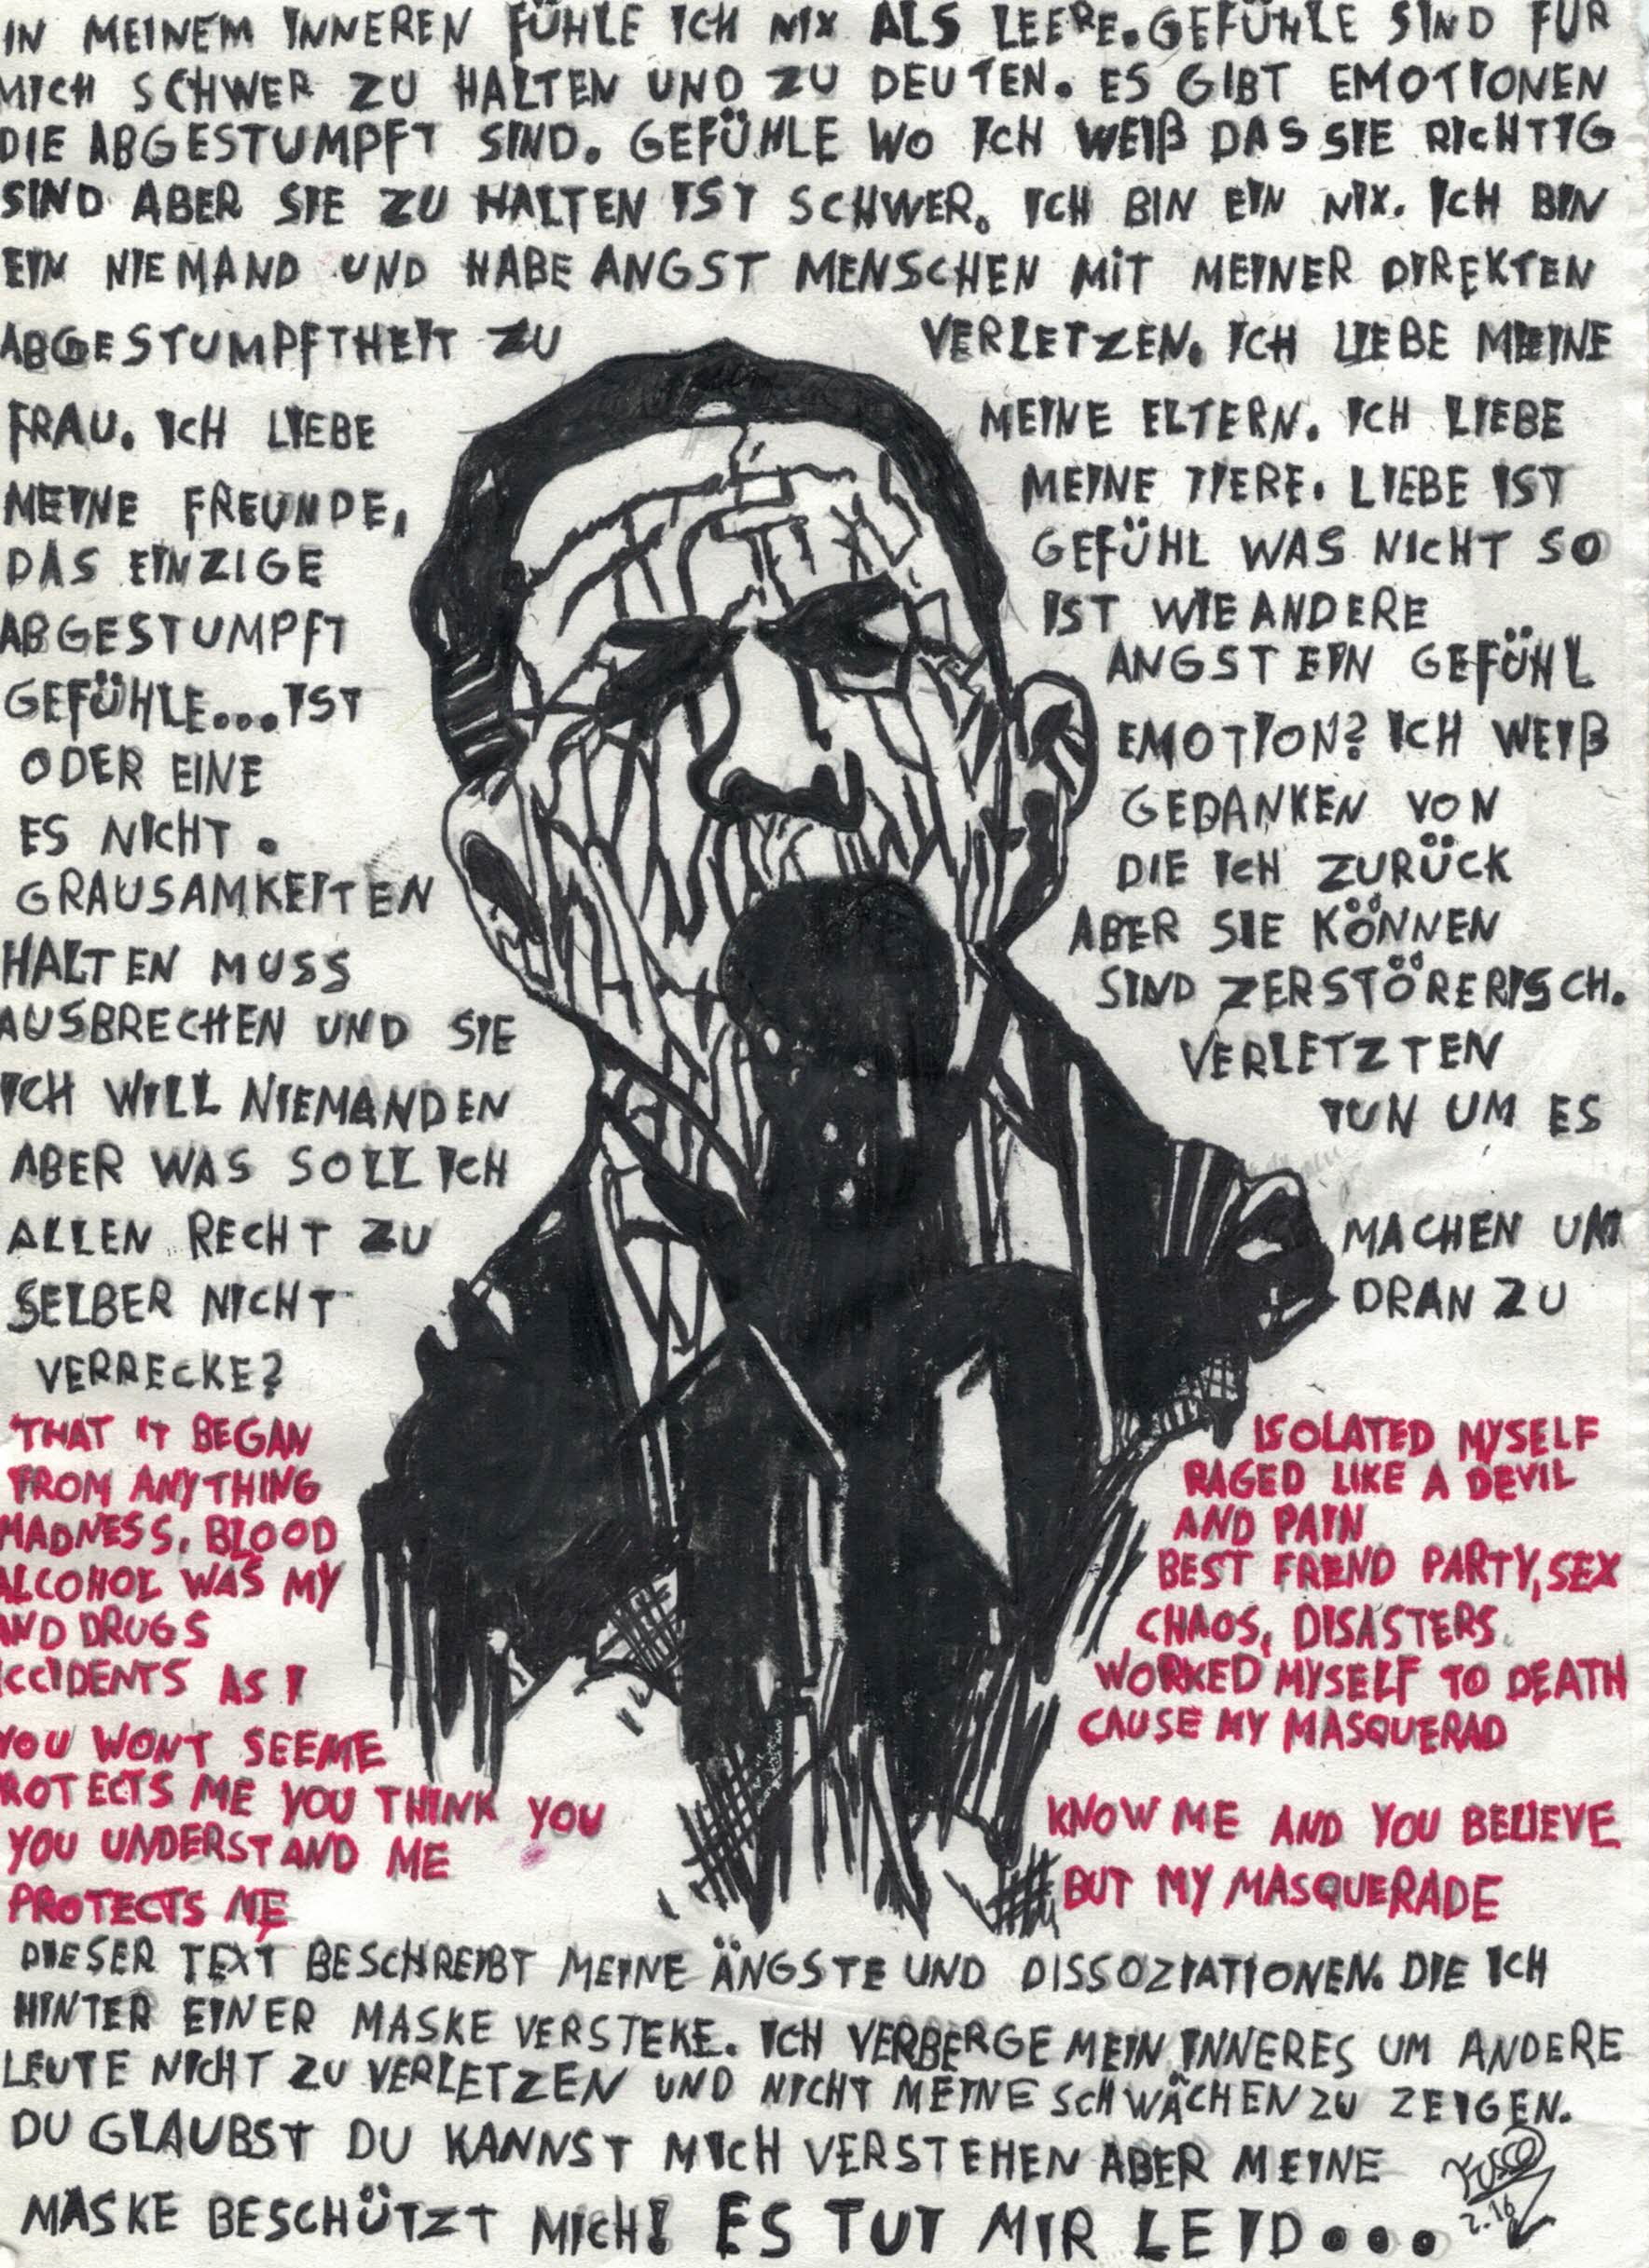 IN MEINEM INNEREN FÜHLE ICH NIX ALS LEERE. GEFÜHLE SIND FÜR
MICH SCHWER ZU HALTEN UND ZU DEUTEN. ES GIBT EMOTIONEN
DIE ABGESTUMPFT SIND. GEFÜHLE WO ICH WEIß DAS SIE RICHTIG
SIND ABER SIE ZU HALTEN IST SCHWER. ICH BIN EIN NIX. ICH BIN
EIN NIEMAND UND HABE ANGST MENSCHEN MIT MEINER DIREKTEN
ABGESTUMPFTHEIT ZU VERLETZEN. ICH LIEBE MEINE
FRAU. ICH LIEBE MEINE ELTERN. ICH LIEBE
MEINE FREUNDE, MEINE TIERE. LIEBE IST
DAS EINZIGE GEFÜHL WAS NICHT SO
ABGESTUMPFT IST WIE ANDERE
GEFÜHLE... IST ANGST EIN GEFÜHL
ODER EINE EMOTION? ICH WEIß
ES NICHT. GEDANKEN VON
GRAUSAMKEITEN DIE ICH ZURÜCK
HALTEN MUSS ABER SIE KÖNNEN
AUSBRECHEN UND SIE SIND ZERSTÖRERISCH.
ICH WILL NIEMANDEN VERLETZTEN
ABER WAS SOLL ICH TUN UM ES
ALLEN RECHT ZU MACHEN UM
SELBER NICHT DRAN ZU
VERRECKE?
THAT IT BEGAN ISOLATED MYSELF
FROM ANYTHING RAGED LIKE A DEVIL
MADNESS, BLOOD AND PAIN
ALCOHOL WAS MY BEST FREND PARTY, SEX
AND DRUGS CHAOS, DISASTERS
CCIDENTS AS I WORKED MYSELF TO DEATH
YOU WONT SEEME CAUSE MY MASQUERAD
ROTECTS ME YOU THINK YOU KNOW ME AND YOU BELIEVE
YOU UNDERSTAND ME BUT MY MASQUERADE
PROTECTS ME
DIESER TEXT BESCHREIBT MEINE ÄNGSTE UND DISSOZIATIONEN. DIE ICH
HINTER EINER MASKE VERSTEKE. ICH VERBERGE MEIN INNERES UM ANDERE
LEUTE NICHT ZU VERLETZEN UND NICHT MEINE SCHWÄCHEN ZU ZEIGEN.
DU GLAUBST DU KANNST MICH VERSTEHEN ABER MEINE
MASKE BESCHÜTZT MICH! ES TUT MIR LEID...
2.16